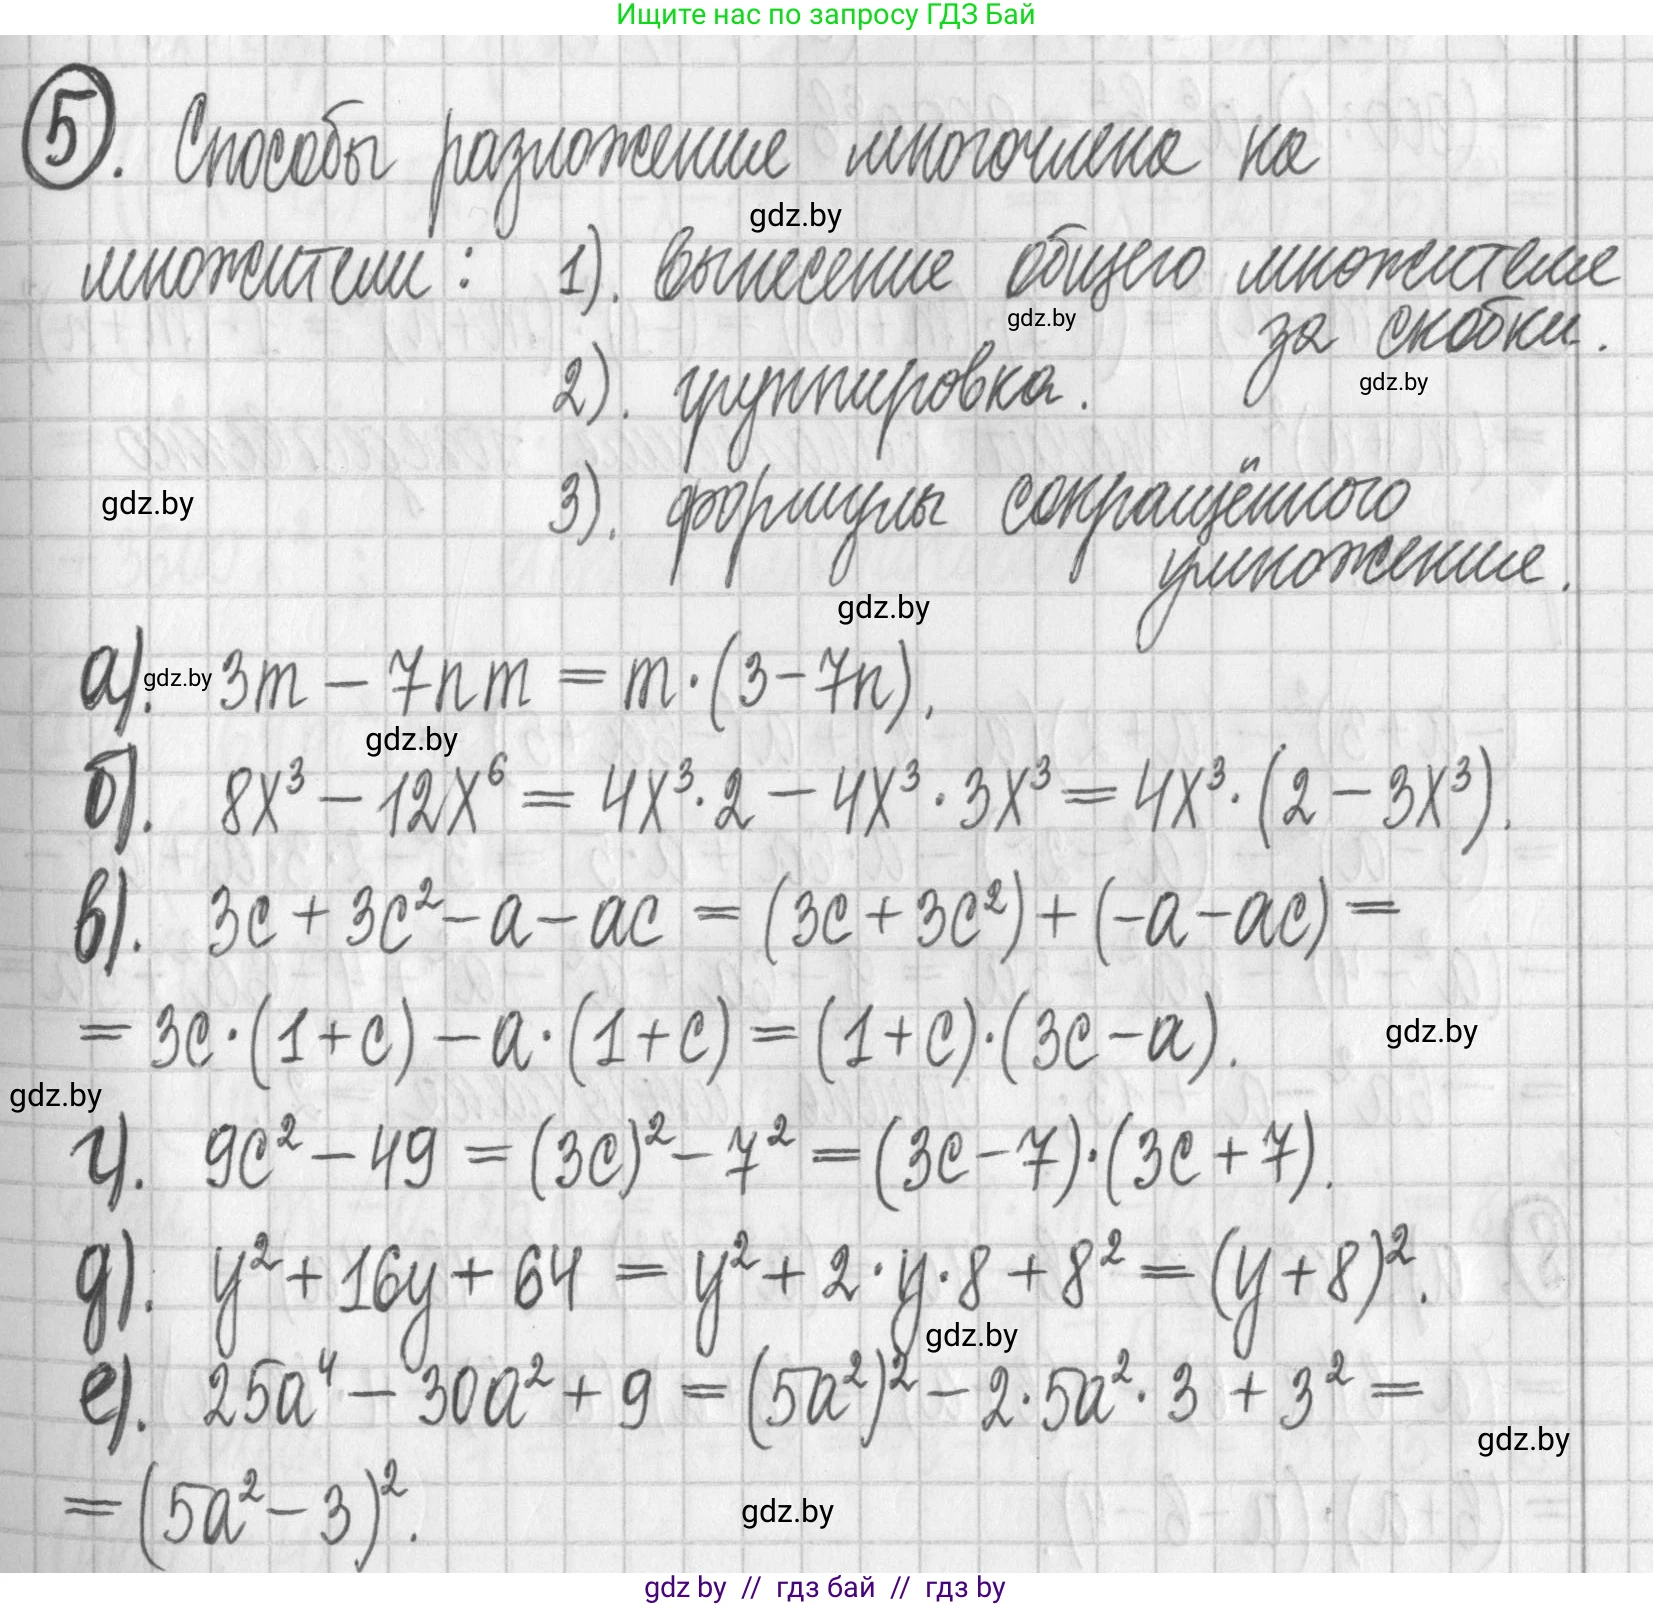 Ищите нас по запросу ГДЗ Бай
5. Способы разложения многочлена на
gdz.by
множители: 1). вынесение общего множителя
gdz.by
за скобки.
gdz.by
2). группировка.
gdz.by
3). формулы сокращённого
умножения.
gdz.by
а). gdz.by 3m − 7nm = m·(3−7n).
gdz.by
б). 8x³ − 12x⁶ = 4x³·2 − 4x³·3x³ = 4x³·(2 − 3x³).
в). 3c + 3c² − a − ac = (3c + 3c²) + (−a − ac) =
= 3c·(1+c) − a·(1+c) = (1+c)·(3c − a).
gdz.by
gdz.by
г). 9c² − 49 = (3c)² − 7² = (3c − 7)·(3c + 7).
д). y² + 16y + 64 = y² + 2·y·8 + 8² = (y + 8)².
gdz.by
е). 25a⁴ − 30a² + 9 = (5a²)² − 2·5a²·3 + 3² =
gdz.by
= (5a² − 3)².
gdz.by
gdz by // гдз бай // gdz by